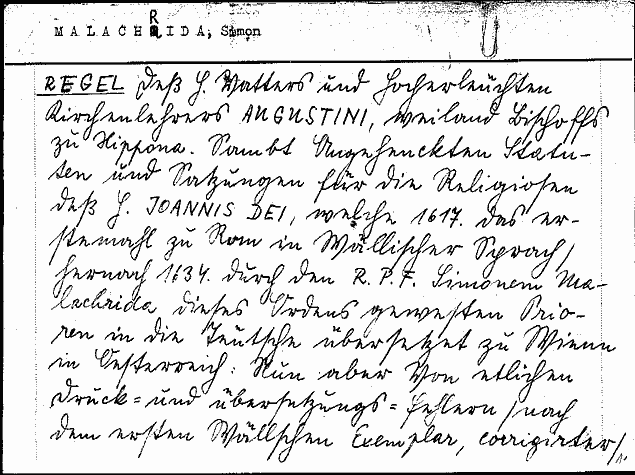 MALACHRIDA, Simon
REGEL deß H. Vatters und Hocherleuchten
Kirchenlehrers AUGUSTINI, weiland Bischoffs
zu Hippona. Sambt Angehenckten Statu-
ten und Satzungen für die Religiosen
deß H. JOANNIS DEI, welche 1617. das er-
stemahl zu Rom in Wällischer Sprach/
hernach 1634. durch den R. P. F. Simonem Ma-
lachrida dieses Ordens gewesten Prio-
ren in die Teutsche übersetzet zu Wienn
in Oesterreich: Nun aber Von etlichen
Druck- und übersetzungs-fehlern/nach
dem ersten Wällschen Exemplar, corrigirter/